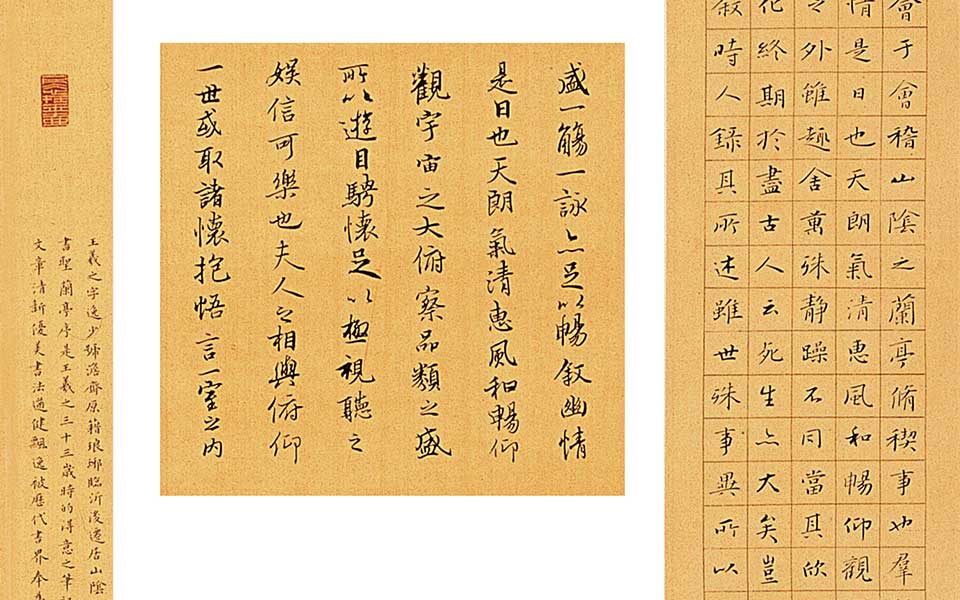 會于會稽山陰之蘭亭脩稧事也羣
情是日也天朗氣清惠風和暢仰觀
之外雖趣舍萬殊静躁不同當其欣
化終期於盡古人云死生亦大矣豈
叙時人録其所述雖世殊事異所以
盛一觴一詠亦足以暢叙幽情
是日也天朗氣清惠風和暢仰
觀宇宙之大俯察品類之盛
所以遊目騁懷足以極視聽之
娱信可樂也夫人之相與俯仰
一世或取諸懷抱悟言一室之内
王羲之字逸少號澹齋原籍琅琊臨沂後遷居山陰
書聖蘭亭序是王羲之三十三歲時的得意之筆
文章清新優美書法遒健飄逸被歷代書界奉